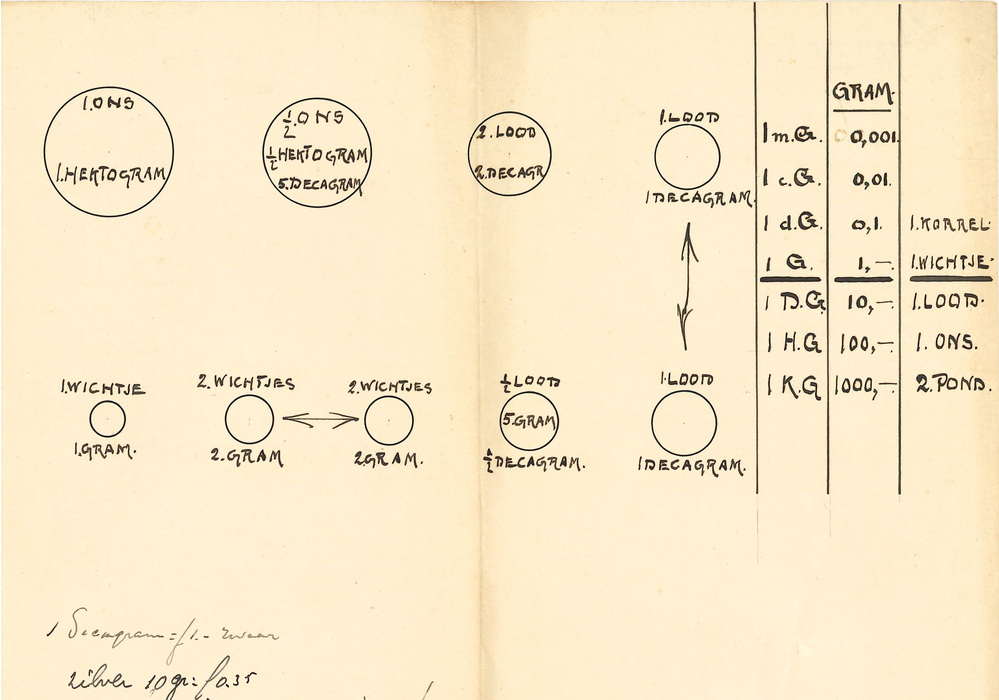 1.ONS
1.HEKTOGRAM
½.ONS
½HEKTOGRAM
5.DECAGRAM
2.LOOD
2.DECAGR
1.LOOD
1DECAGRAM.
1.WICHTJE
1.GRAM.
2.WICHTJES
2.GRAM
2.WICHTJES
2GRAM.
½LOOD
5.GRAM
½DECAGRAM.
1.LOOD
1DECAGRAM.
GRAM.
1 m.G. 0,001.
1 c.G. 0,01.
1 d.G. 0,1. 1.KORREL
1 G. 1,— 1.WICHTJE.
1 D.G 10,— 1.LOOD.
1 H.G 100,— 1.ONS.
1 K.G 1000,— 2.POND.
1 Decagram = f1.- zwaar
zilver 10gr = f0.35